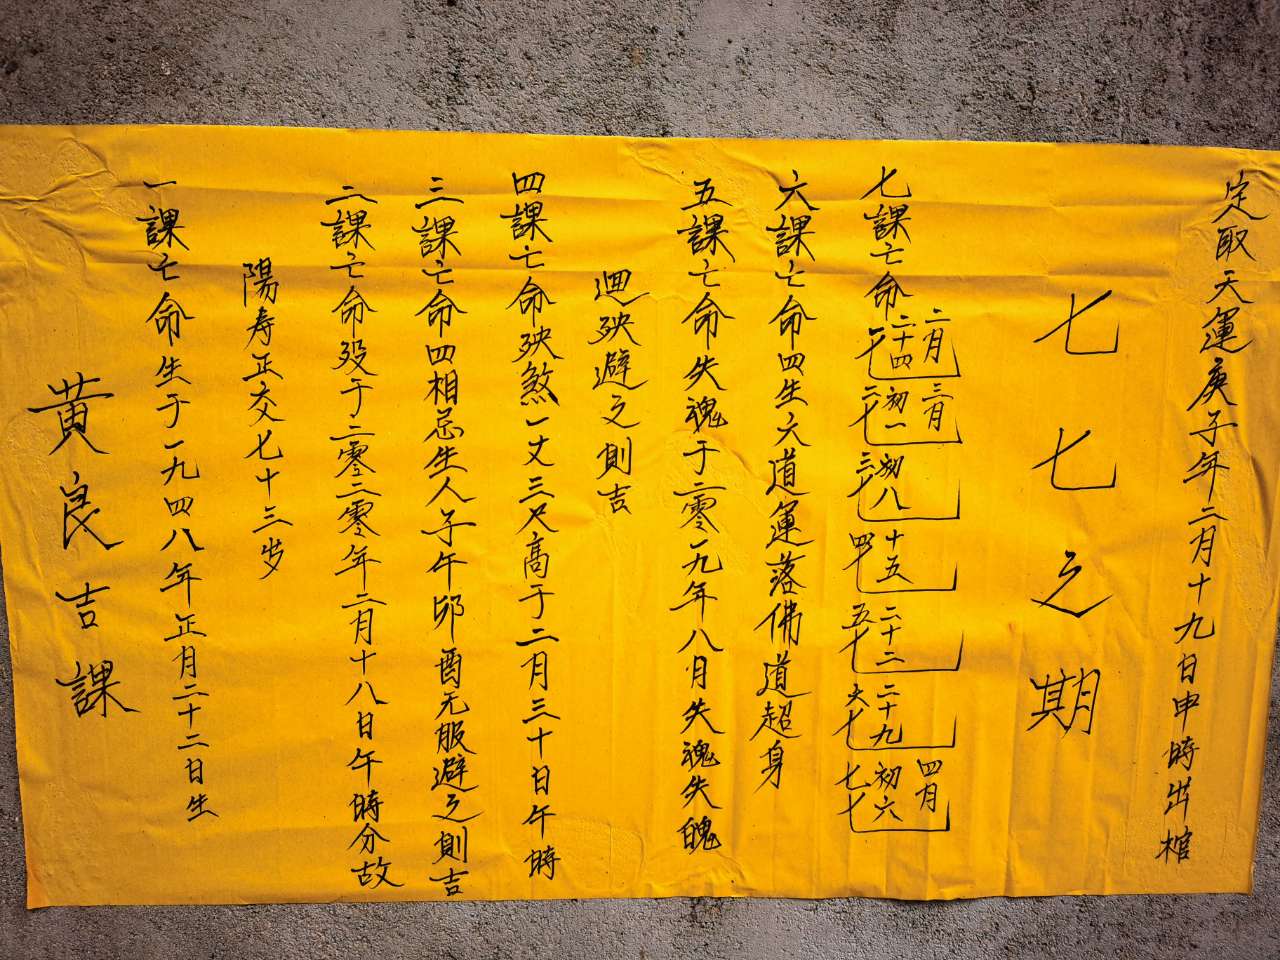 黄良吉課
一課亡命生于一九四八年正月二十二日生
陽寿正交七十三岁
二課亡命殁于二零二零年二月十八日午時分故
三課亡命四相忌生人子午卯酉无服避之則吉
四課亡命殃煞一丈三尺高于二月三十日午時
迴殃避之則吉
五課亡命失魂于二零一九年八月失魂失魄
六課亡命四生六道運落佛道超身
七課亡命
二月二十四一七
三月初一二七
初八三七
十五四七
二十二五七
二十九六七
四月初六七七
七七之期
定取天運庚子年二月十九日申時出棺